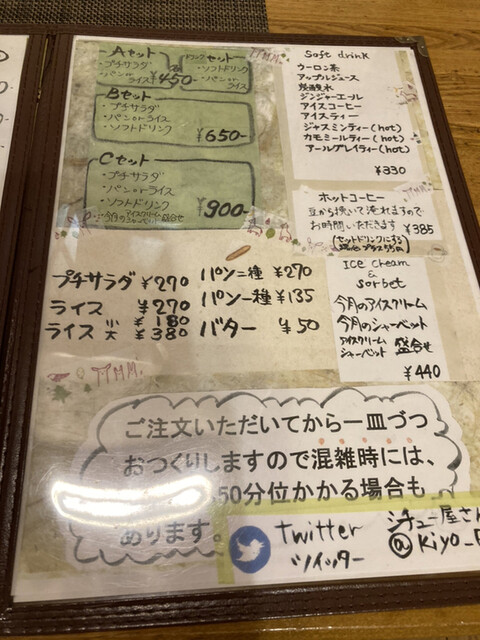 Aセット
・プチサラダ
・パンorライス
¥450-
セット
・ソフトドリンク
・パンorライス
Bセット
・プチサラダ
・パンorライス
・ソフトドリンク
¥650-
Cセット
・プチサラダ
・パンorライス
・ソフトドリンク
・今月のアイスクリーム シャーベット 盛合せ
¥900-
Soft drink
ウーロン茶
アップルジュース
炭酸水
ジンジャーエール
アイスコーヒー
アイスティー
ジャスミンティー(hot)
カモミールティー(hot)
アールグレイティー(hot)
¥330
ホットコーヒー
豆から挽いて淹れますので
お時間いただきます ¥385
(セットドリンクにする場合プラス55円)
プチサラダ ¥270
ライス ¥270
ライス 小 ¥180
大 ¥380
パン二種 ¥270
パン一種 ¥135
バター ¥50
Ice cream
&
sorbet
今月のアイスクリーム
今月のシャーベット
アイスクリーム シャーベット 盛合せ
¥440
ご注文いただいてから一皿づつ
おつくりしますので混雑時には、
50分位かかる場合も
あります。
twitter
ツイッター
シチュー屋さん
@Kiyo_